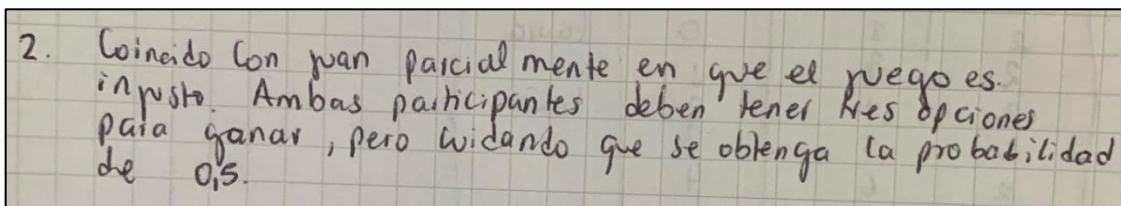 2. Coincido Con Juan parcialmente en que el juego es.
injusto. Ambas participantes deben tener tres opciones
para ganar, pero cuidando que se obtenga la probabilidad
de 0,5.